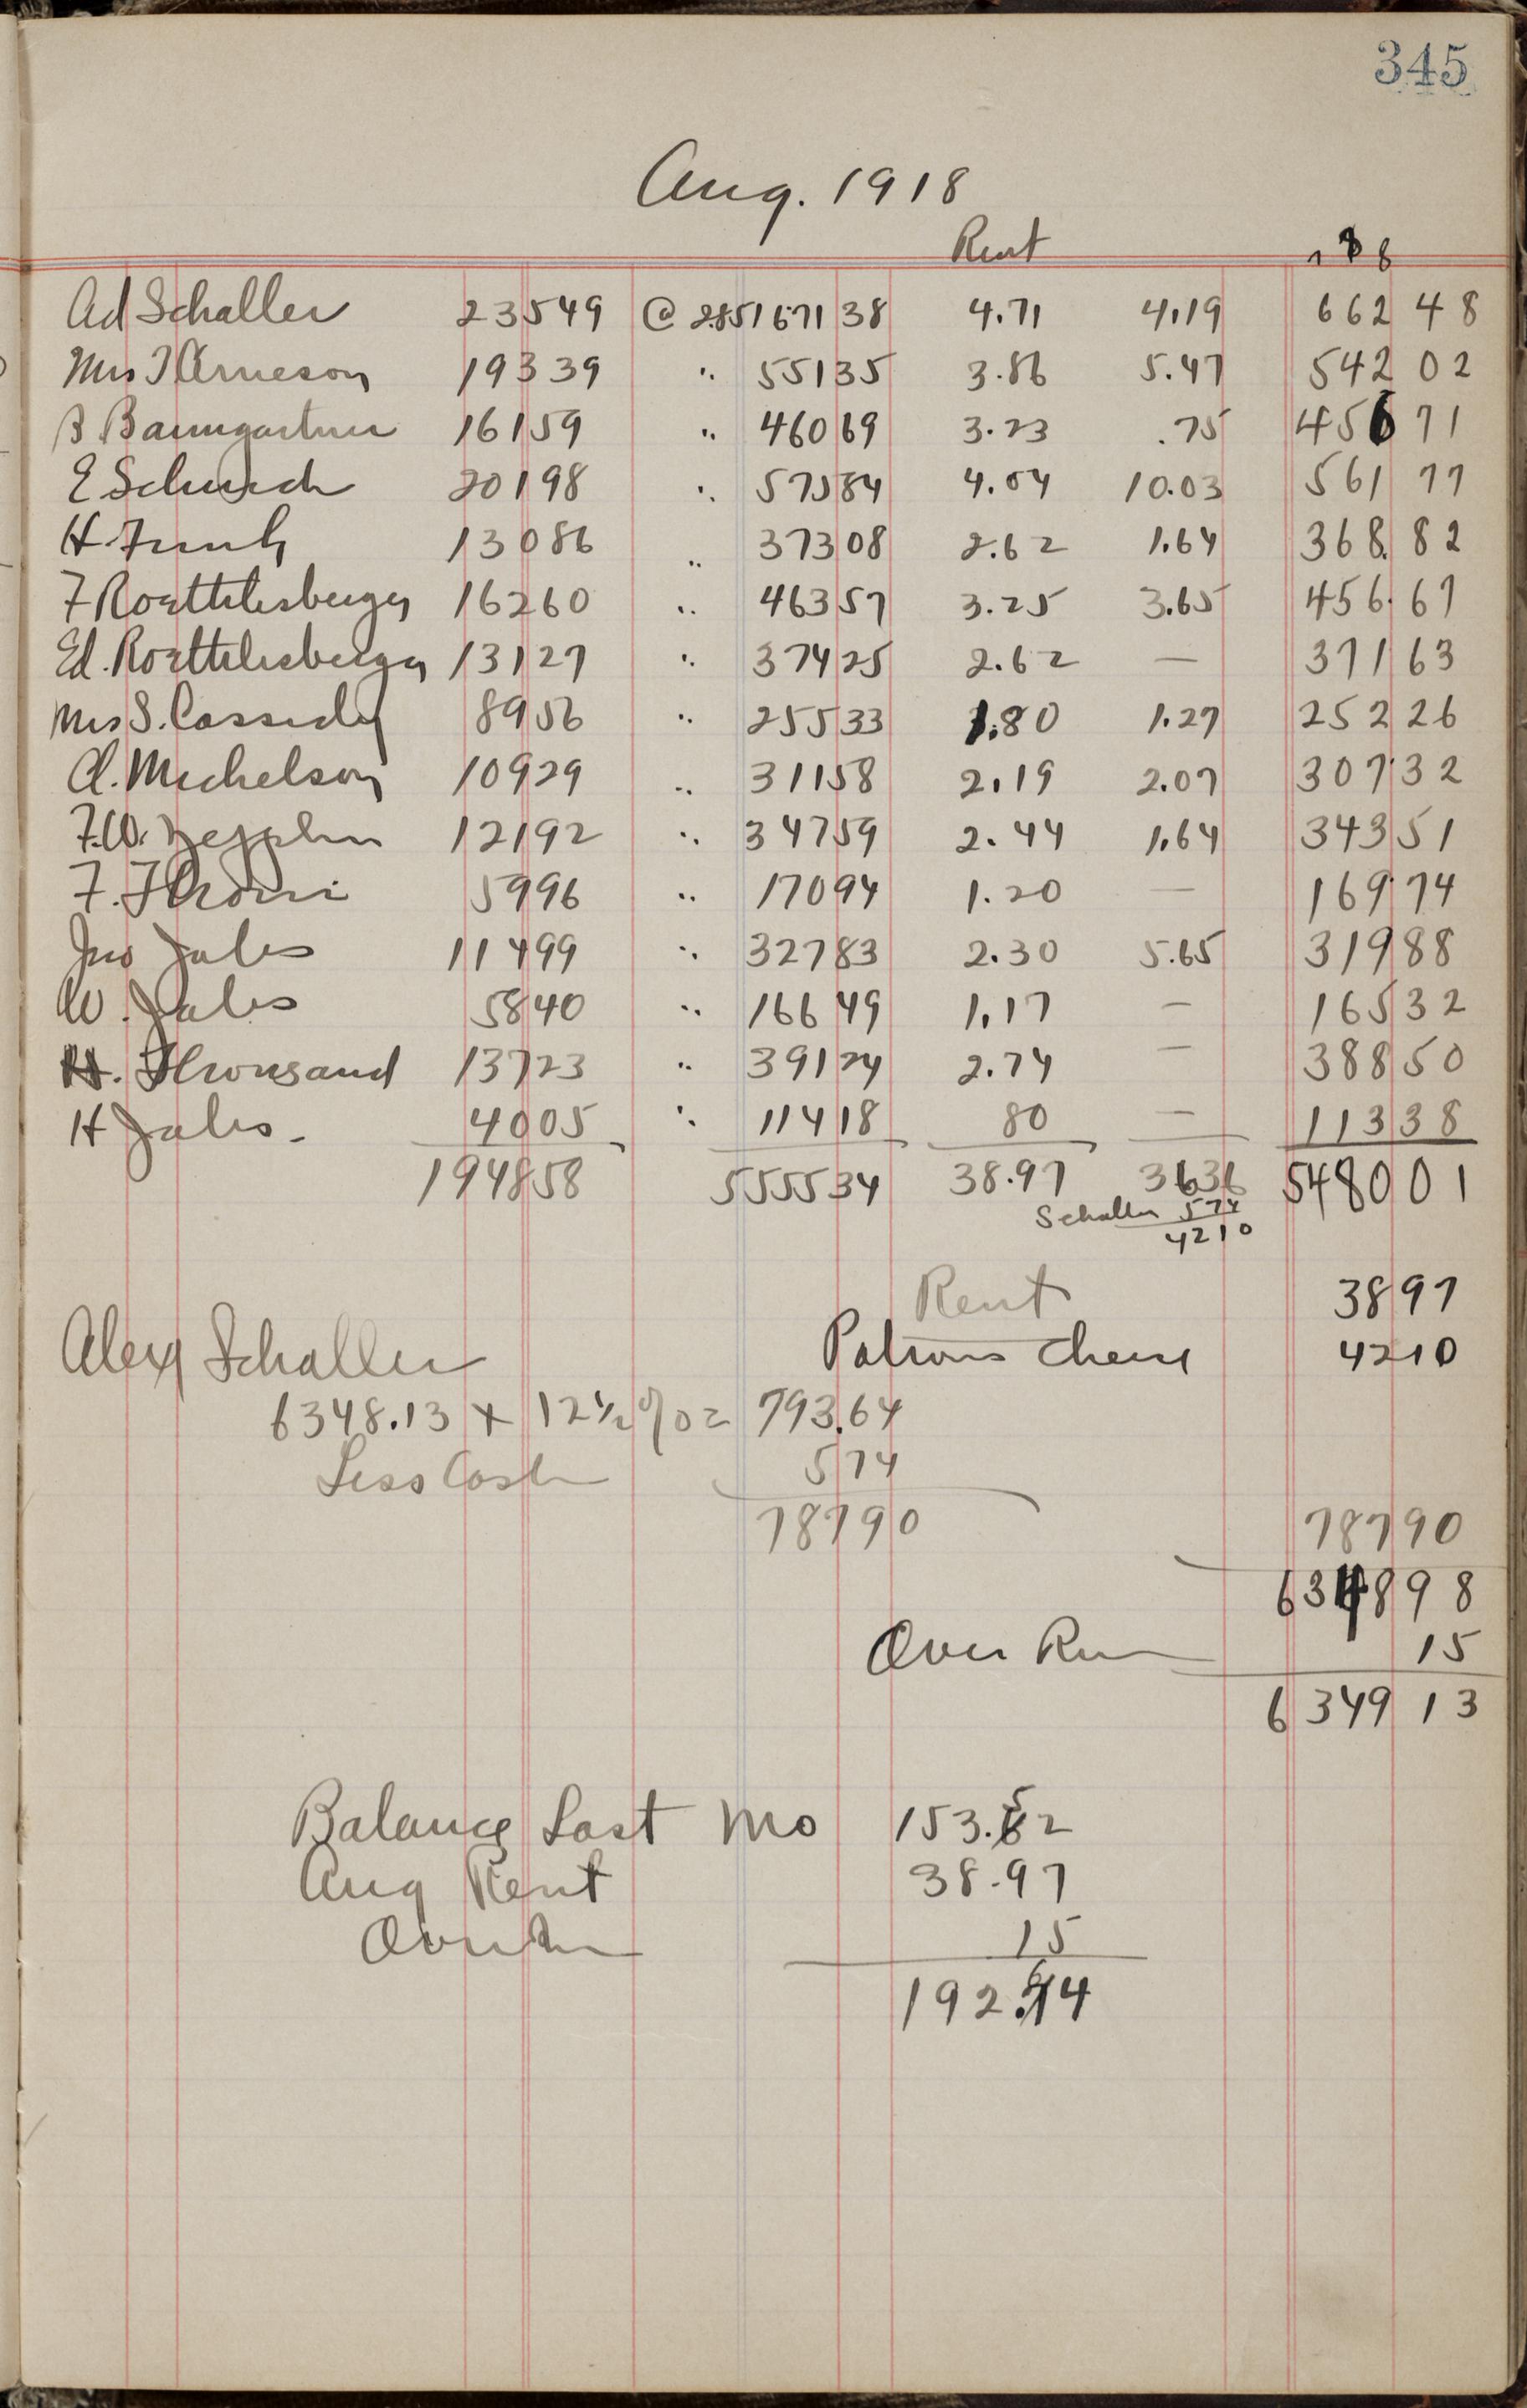 345
Aug. 1918
Rent 188
Ad Schaller 23549 @ 2.8516 671 38 4.71 4.19 662 48
Mrs J Arneson 19339 " 551 35 3.86 5.47 542 02
B Baumgartner 16159 " 460 69 3.23 .75 456 71
E Schmid 20198 " 575 84 4.04 10.03 561 77
H. Funk 13086 " 373 08 2.62 1.64 368. 82
F Roethlisberger 16260 " 463 57 3.25 3.65 456. 67
Ed. Roethlisberger 13127 " 374 25 2.62 — 371 63
Mrs S. Cassidy 8956 " 255 33 1.80 1.27 252 26
A. Michelson 10929 " 311 58 2.19 2.07 307 32
F.W. Zepplin 12192 " 347 59 2.44 1.64 343 51
F. 5996 " 170 94 1.20 — 169 74
Jno Jales 11499 " 327 83 2.30 5.65 319 88
W. Jales 5840 " 166 49 1.17 — 165 32
H. Thousand 13723 " 391 24 2.74 — 388 50
H Jales. 4005 " 114 18 80 — 113 38
194858 5555 34 38.97 36 36 5480 01
Schaller 5 74
42 10
Rent 38 97
Alex Schaller Patrons Cheese 42 10
6348.13 x 12 1/2 % = 793.64
Less Cash 5 74
787 90 787 90
6348 98
Over Run 15
6349 13
Balance Last Mo 153.52
Aug Rent 38.97
Over Run 15
192.64